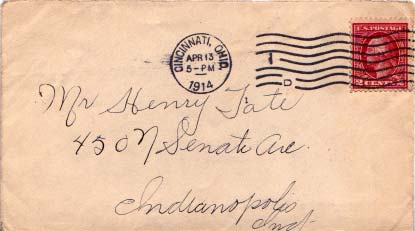 CINCINNATI, OHIO
APR 13
5-PM
1914
1
D
U.S. POSTAGE
2 CENTS 2
Mr Henry Tate
450 N Senate Ave.
Indianapolis
Ind.